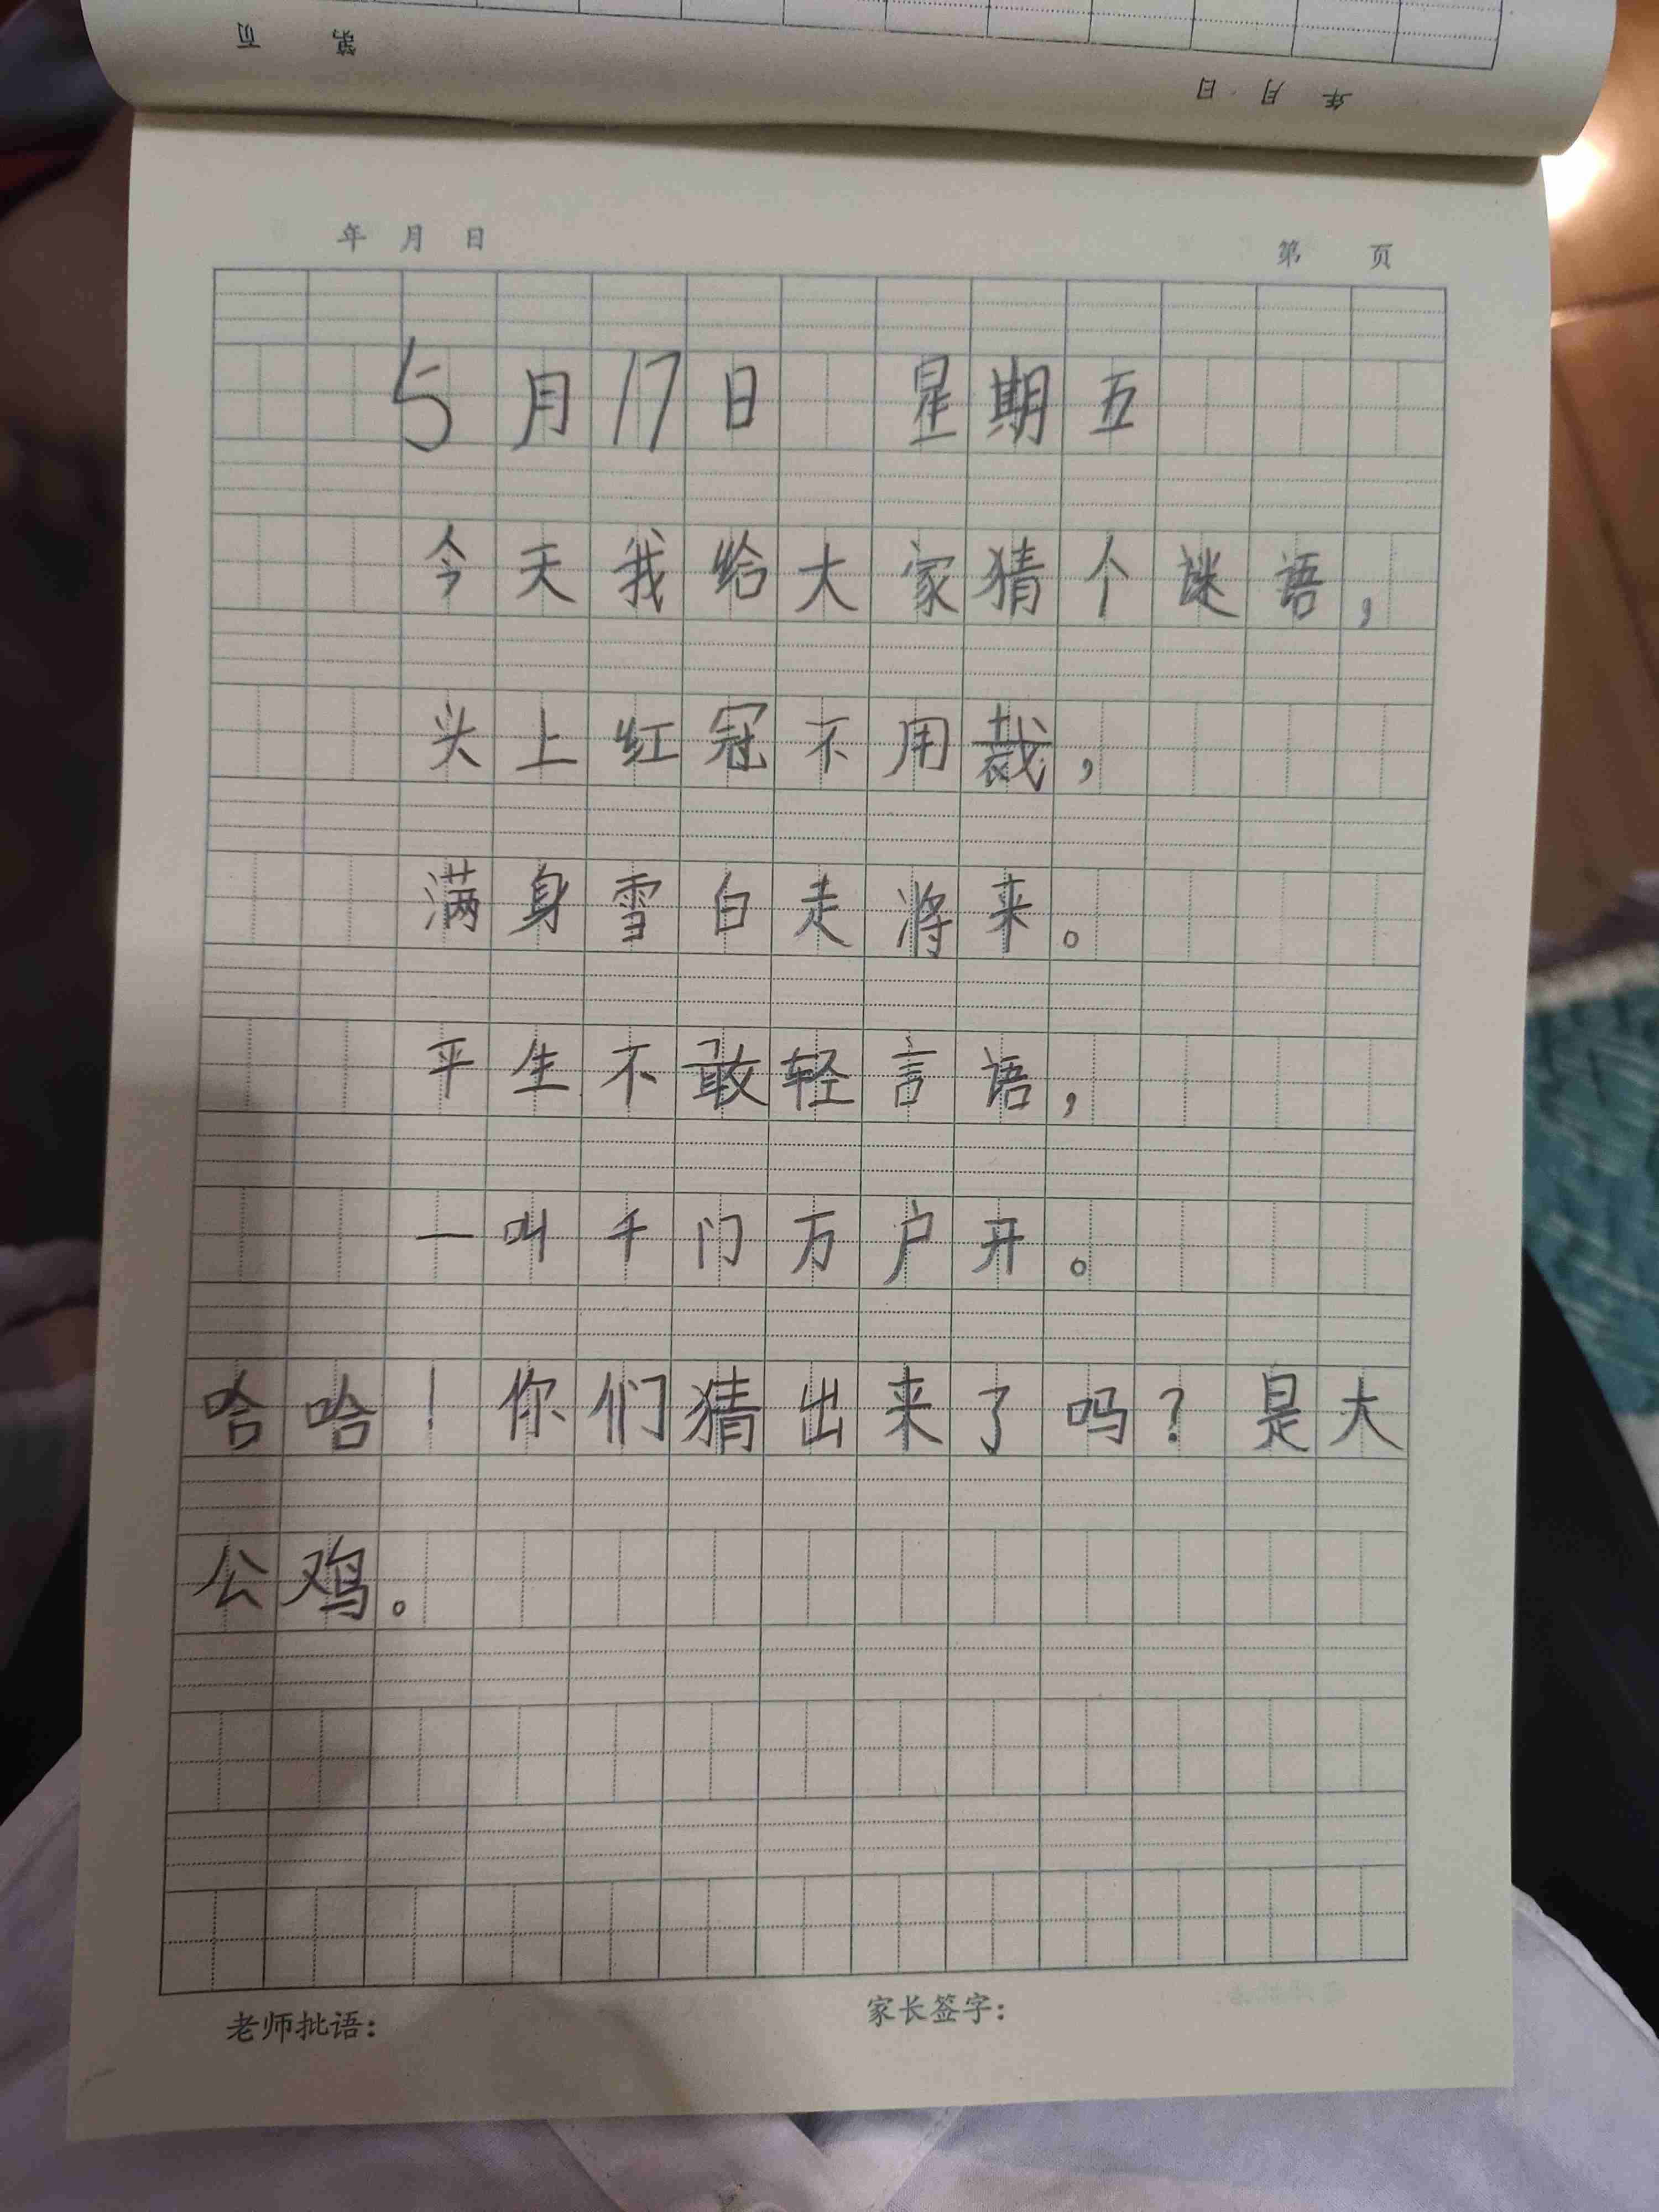 页 第
年 月 日
年 月 日 第 页
5月17日 星期五
今天我给大家猜个谜语，
头上红冠不用裁，
满身雪白走将来。
平生不敢轻言语，
一叫千门万户开。
哈哈！你们猜出来了吗？是大
公鸡。
老师批语： 家长签字：